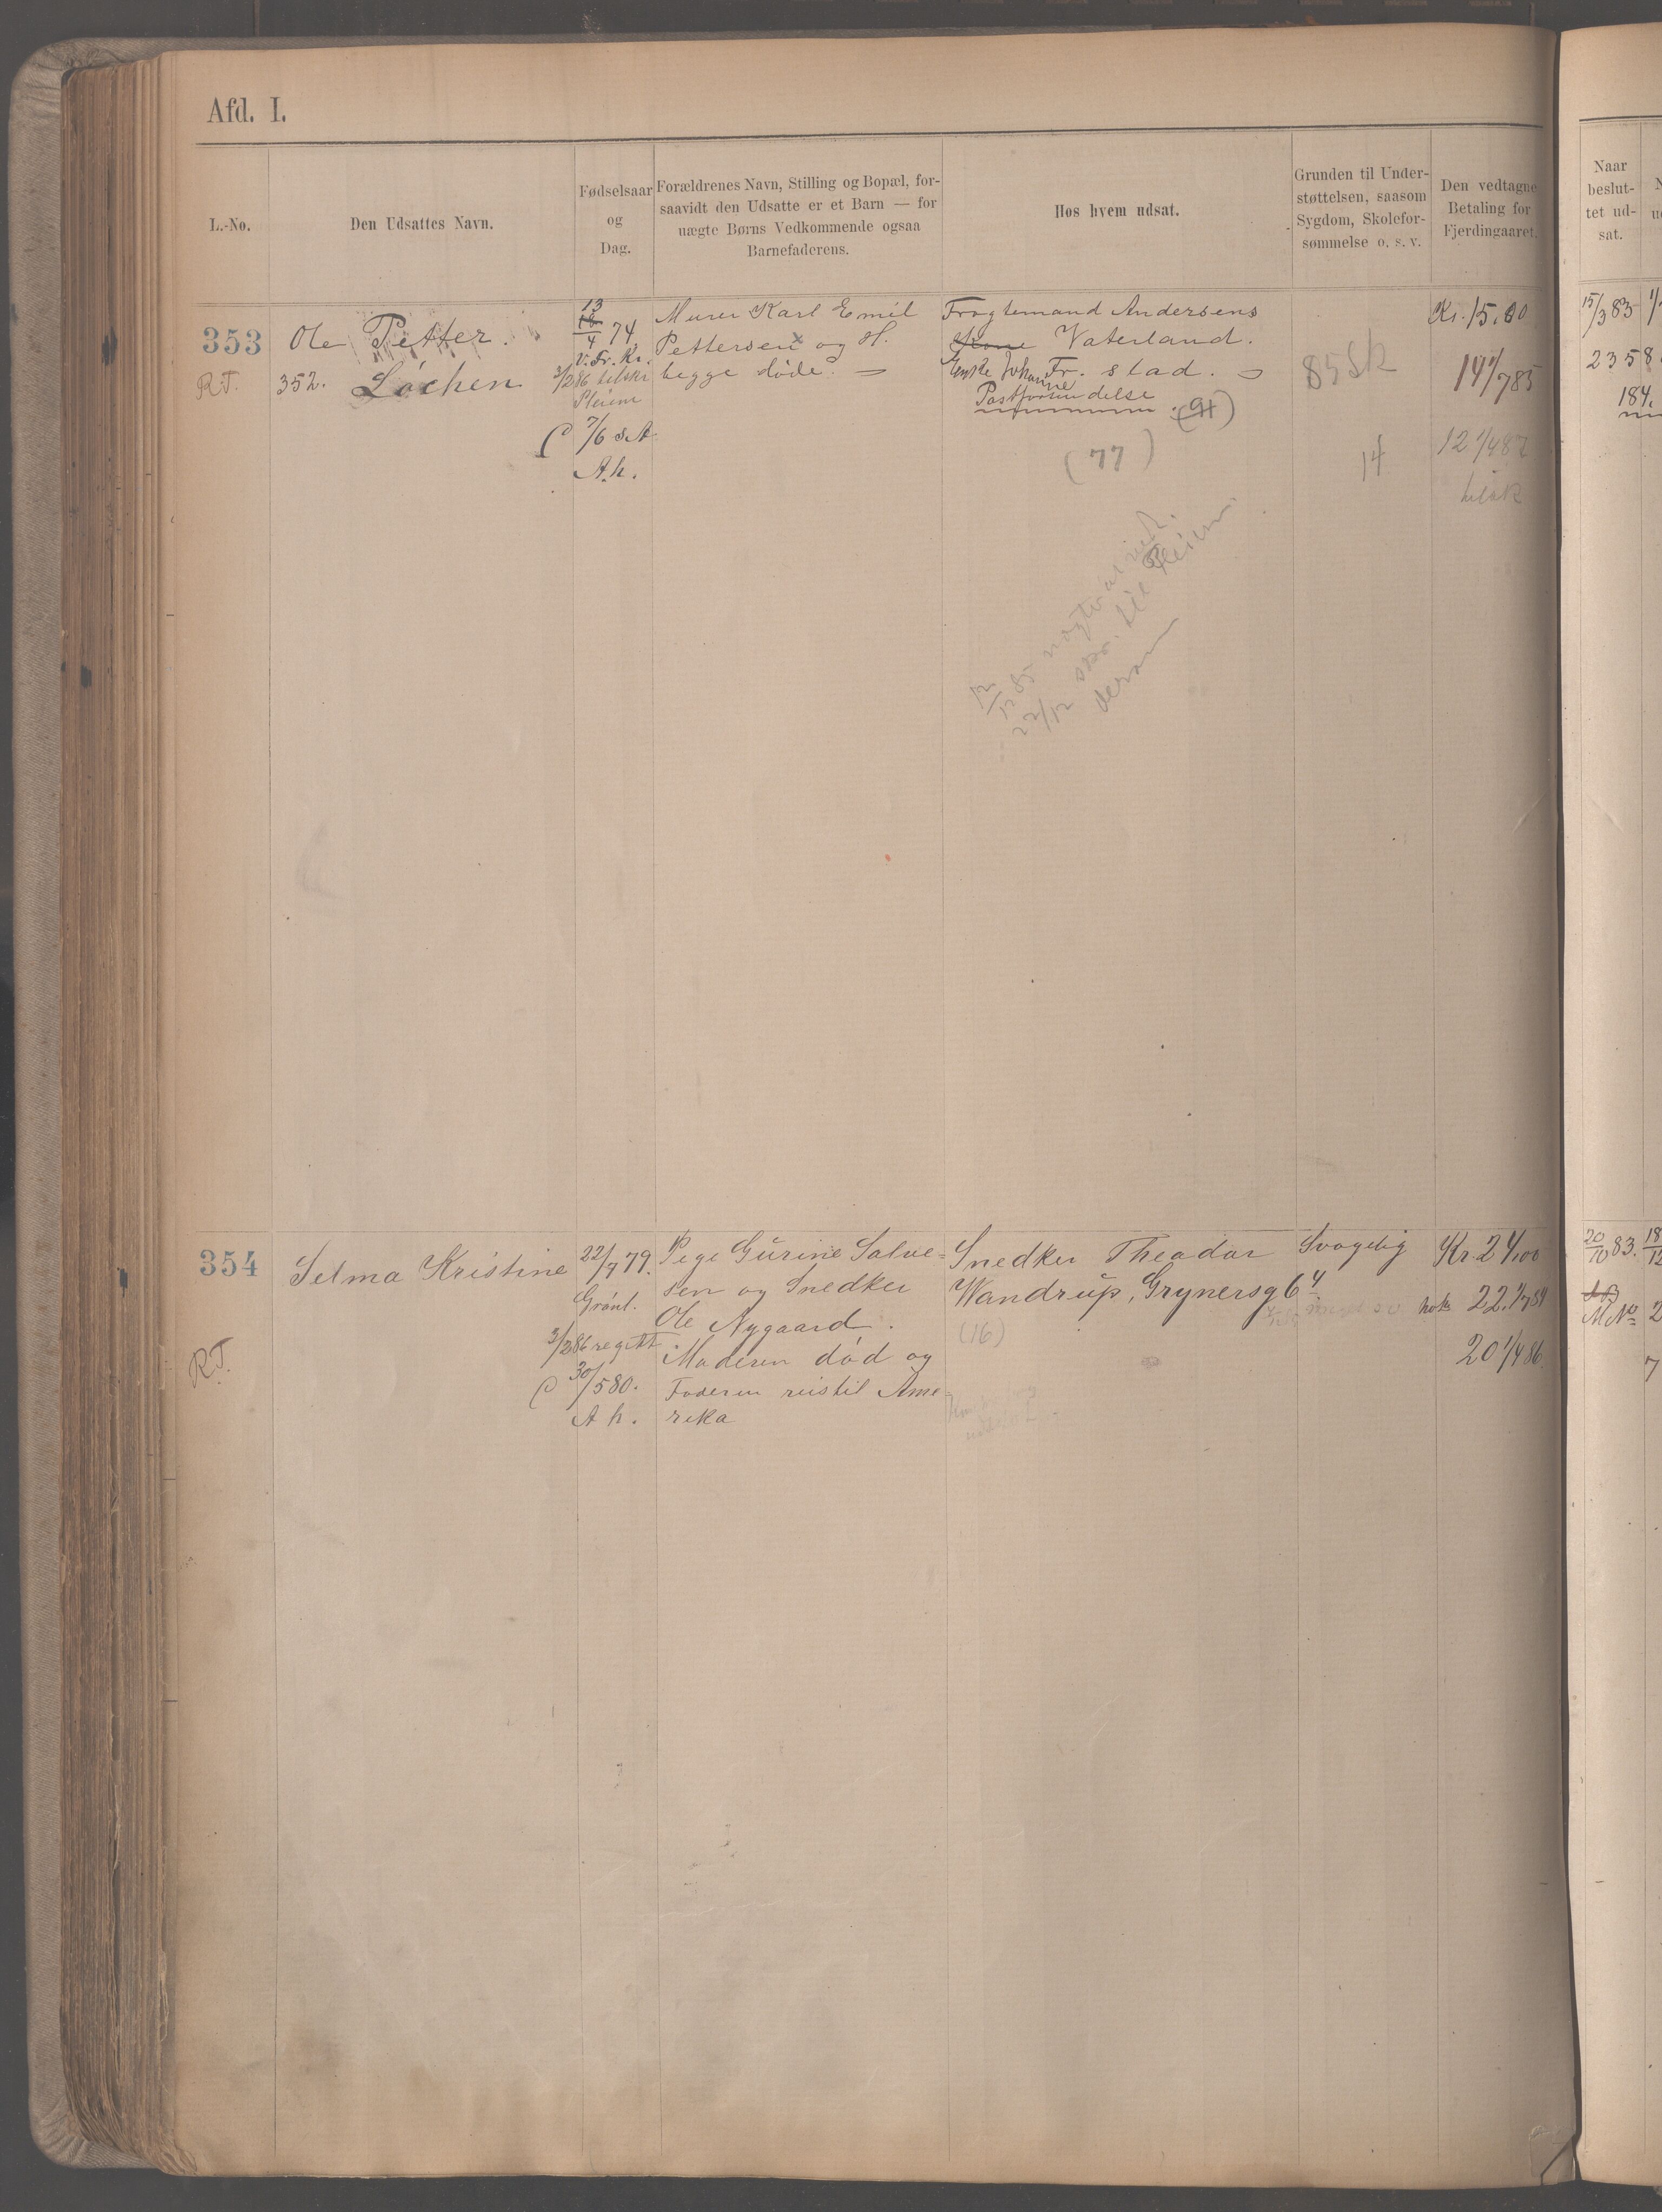 Afd. I.
L.-No.
Den Udsattes Navn.
Fødselsaar
og
Dag.
Forældrenes Navn, Stilling og Bopæl, for-
saavidt den Udsatte er et Barn — for
uægte Børns Vedkommende ogsaa
Barnefaderens.
Hos hvem udsat.
Grunden til Under-
støttelsen, saasom
Sygdom, Skolefor-
sømmelse o. s. v.
Den vedtagne
Betaling for
Fjerdingaaret.
Naar
beslut-
tet ud-
sat.
353
R.T.
352.
Ole Petter.
Løchen
13
18/4 74
V. Fr. Kr.
3/2 86 tilskr
Pleiem
7/6 84
A.h.
Murer Karl Emil
Pettersen x og H.
begge døde. —
Fragtemand Andersens
Kone Vaterland.
Enke Johanne Fr. stad.
Postforsendelse
(91)
(77)
85 Sk
14
Kr. 15.00
14 1/7 85
12 1/4 87
15/3 83
2358
184.
22/12 skr. til Pleiem
354
R.T.
Selma Kristine
22/7 79.
Grønl.
3/2 86 reg
30/5 80.
A h.
Pige Gurine Salve-
sen og Snedker
Ole Nygaard.
Moderen død og
Faderen reist til Ame-
rika
Snedker Theodor
Wandrup, Grynersg 6 4
(16)
Svagelig
Kr 24,00
22. 1/7 84
20 1/4 86.
20/10 83.
18/12